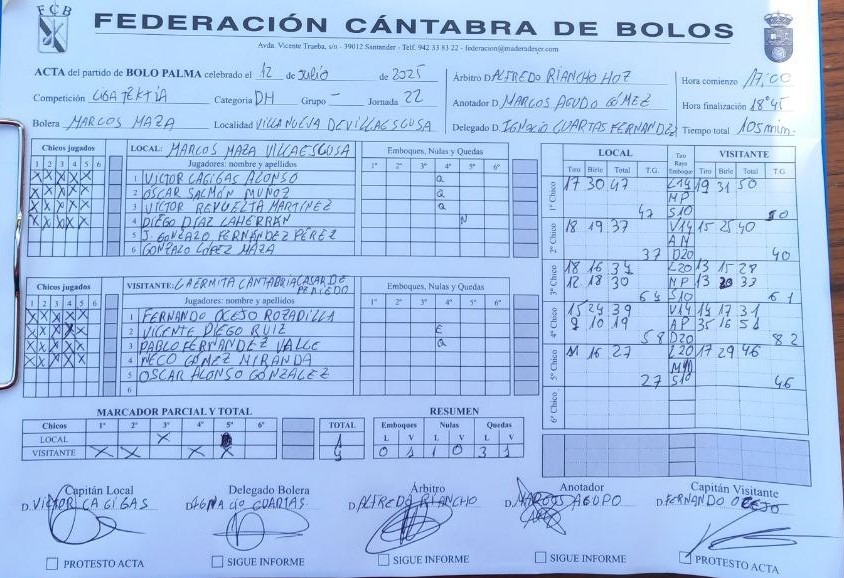 FCB
FEDERACIÓN CÁNTABRA DE BOLOS
Avda. Vicente Trueba, s/n - 39012 Santander - Telf. 942 33 83 22 - federacion@maderadeser.com
ACTA del partido de BOLO PALMA celebrado el 12 de JULIO de 2025
Árbitro D. ALFREDO RIANCHO HOZ
Hora comienzo 17:00
Competición LIGA TEKTIA Categoría DH Grupo - Jornada 22
Anotador D. MARCOS AGUDO GÓMEZ
Hora finalización 18:45
Bolera MARCOS MAZA Localidad VILLANUEVA DE VILLAESCUSA
Delegado D. IGNACIO CUARTAS FERNANDEZ
Tiempo total 105 min.
Chicos jugados
1 2 3 4 5 6
LOCAL: MARCOS MAZA VILLAESCUSA
Jugadores: nombre y apellidos
Emboques, Nulas y Quedas
1º 2º 3º 4º 5º 6º
X X X X X 1 VICTOR CAGIGAS ALONSO Q
X X X X X 2 ÓSCAR SALMÓN MUÑOZ Q
X X X X X 3 VICTOR REVUELTA MARTINEZ Q
X X X X X 4 DIEGO DIAZ LAHERRAN N
5 J. GONZALO FERNÁNDEZ PÉREZ
6 GONZALO LÓPEZ MAZA
Chicos jugados
1 2 3 4 5 6
VISITANTE: LA ERMITA CANTABRIA CASAR DE PERIEDO
Jugadores: nombre y apellidos
Emboques, Nulas y Quedas
1º 2º 3º 4º 5º 6º
X X X X X 1 FERNANDO OCEJO ROZADILLA
X X X X X 2 VICENTE DIEGO RUIZ E
X X X X X 3 PABLO FERNANDEZ VALLE Q
X X X X X 4 NECO GÓMEZ MIRANDA
5 OSCAR ALONSO GONZALEZ
6
LOCAL Tiro Raya Emboque VISITANTE
Tiro Birle Total T.G. Tiro Birle Total T.G.
1º Chico 17 30 47 L14 19 31 50
MP
47 S10 50
2º Chico 18 19 37 V14 15 25 40
AN
37 D20 40
3º Chico 18 16 34 L20 13 15 28
12 18 30 MP 13 20 33
64 S10 61
4º Chico 15 24 39 V14 14 17 31
9 10 19 AP 35 16 51
58 D20 82
5º Chico 11 16 27 L20 17 29 46
27 S10 46
6º Chico
MARCADOR PARCIAL Y TOTAL
Chicos 1º 2º 3º 4º 5º 6º TOTAL
LOCAL X 1
VISITANTE X X X X 4
RESUMEN
Emboques Nulas Quedas
L V L V L V
0 1 1 0 3 1
Capitán Local
D. VICTOR CAGIGAS
Delegado Bolera
D. IGNACIO CUARTAS
Árbitro
D. ALFREDO RIANCHO
Anotador
D. MARCOS AGUDO
Capitán Visitante
D. FERNANDO OCEJO
PROTESTO ACTA
SIGUE INFORME
SIGUE INFORME
SIGUE INFORME
PROTESTO ACTA